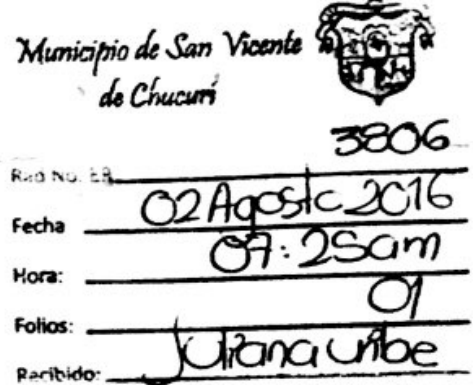 Municipio de San Vicente
de Chucurí
3806
Rad No. ER
Fecha 02 Agosto 2016
Hora: 07:25am
Folios: 01
Recibido: Juliana uribe